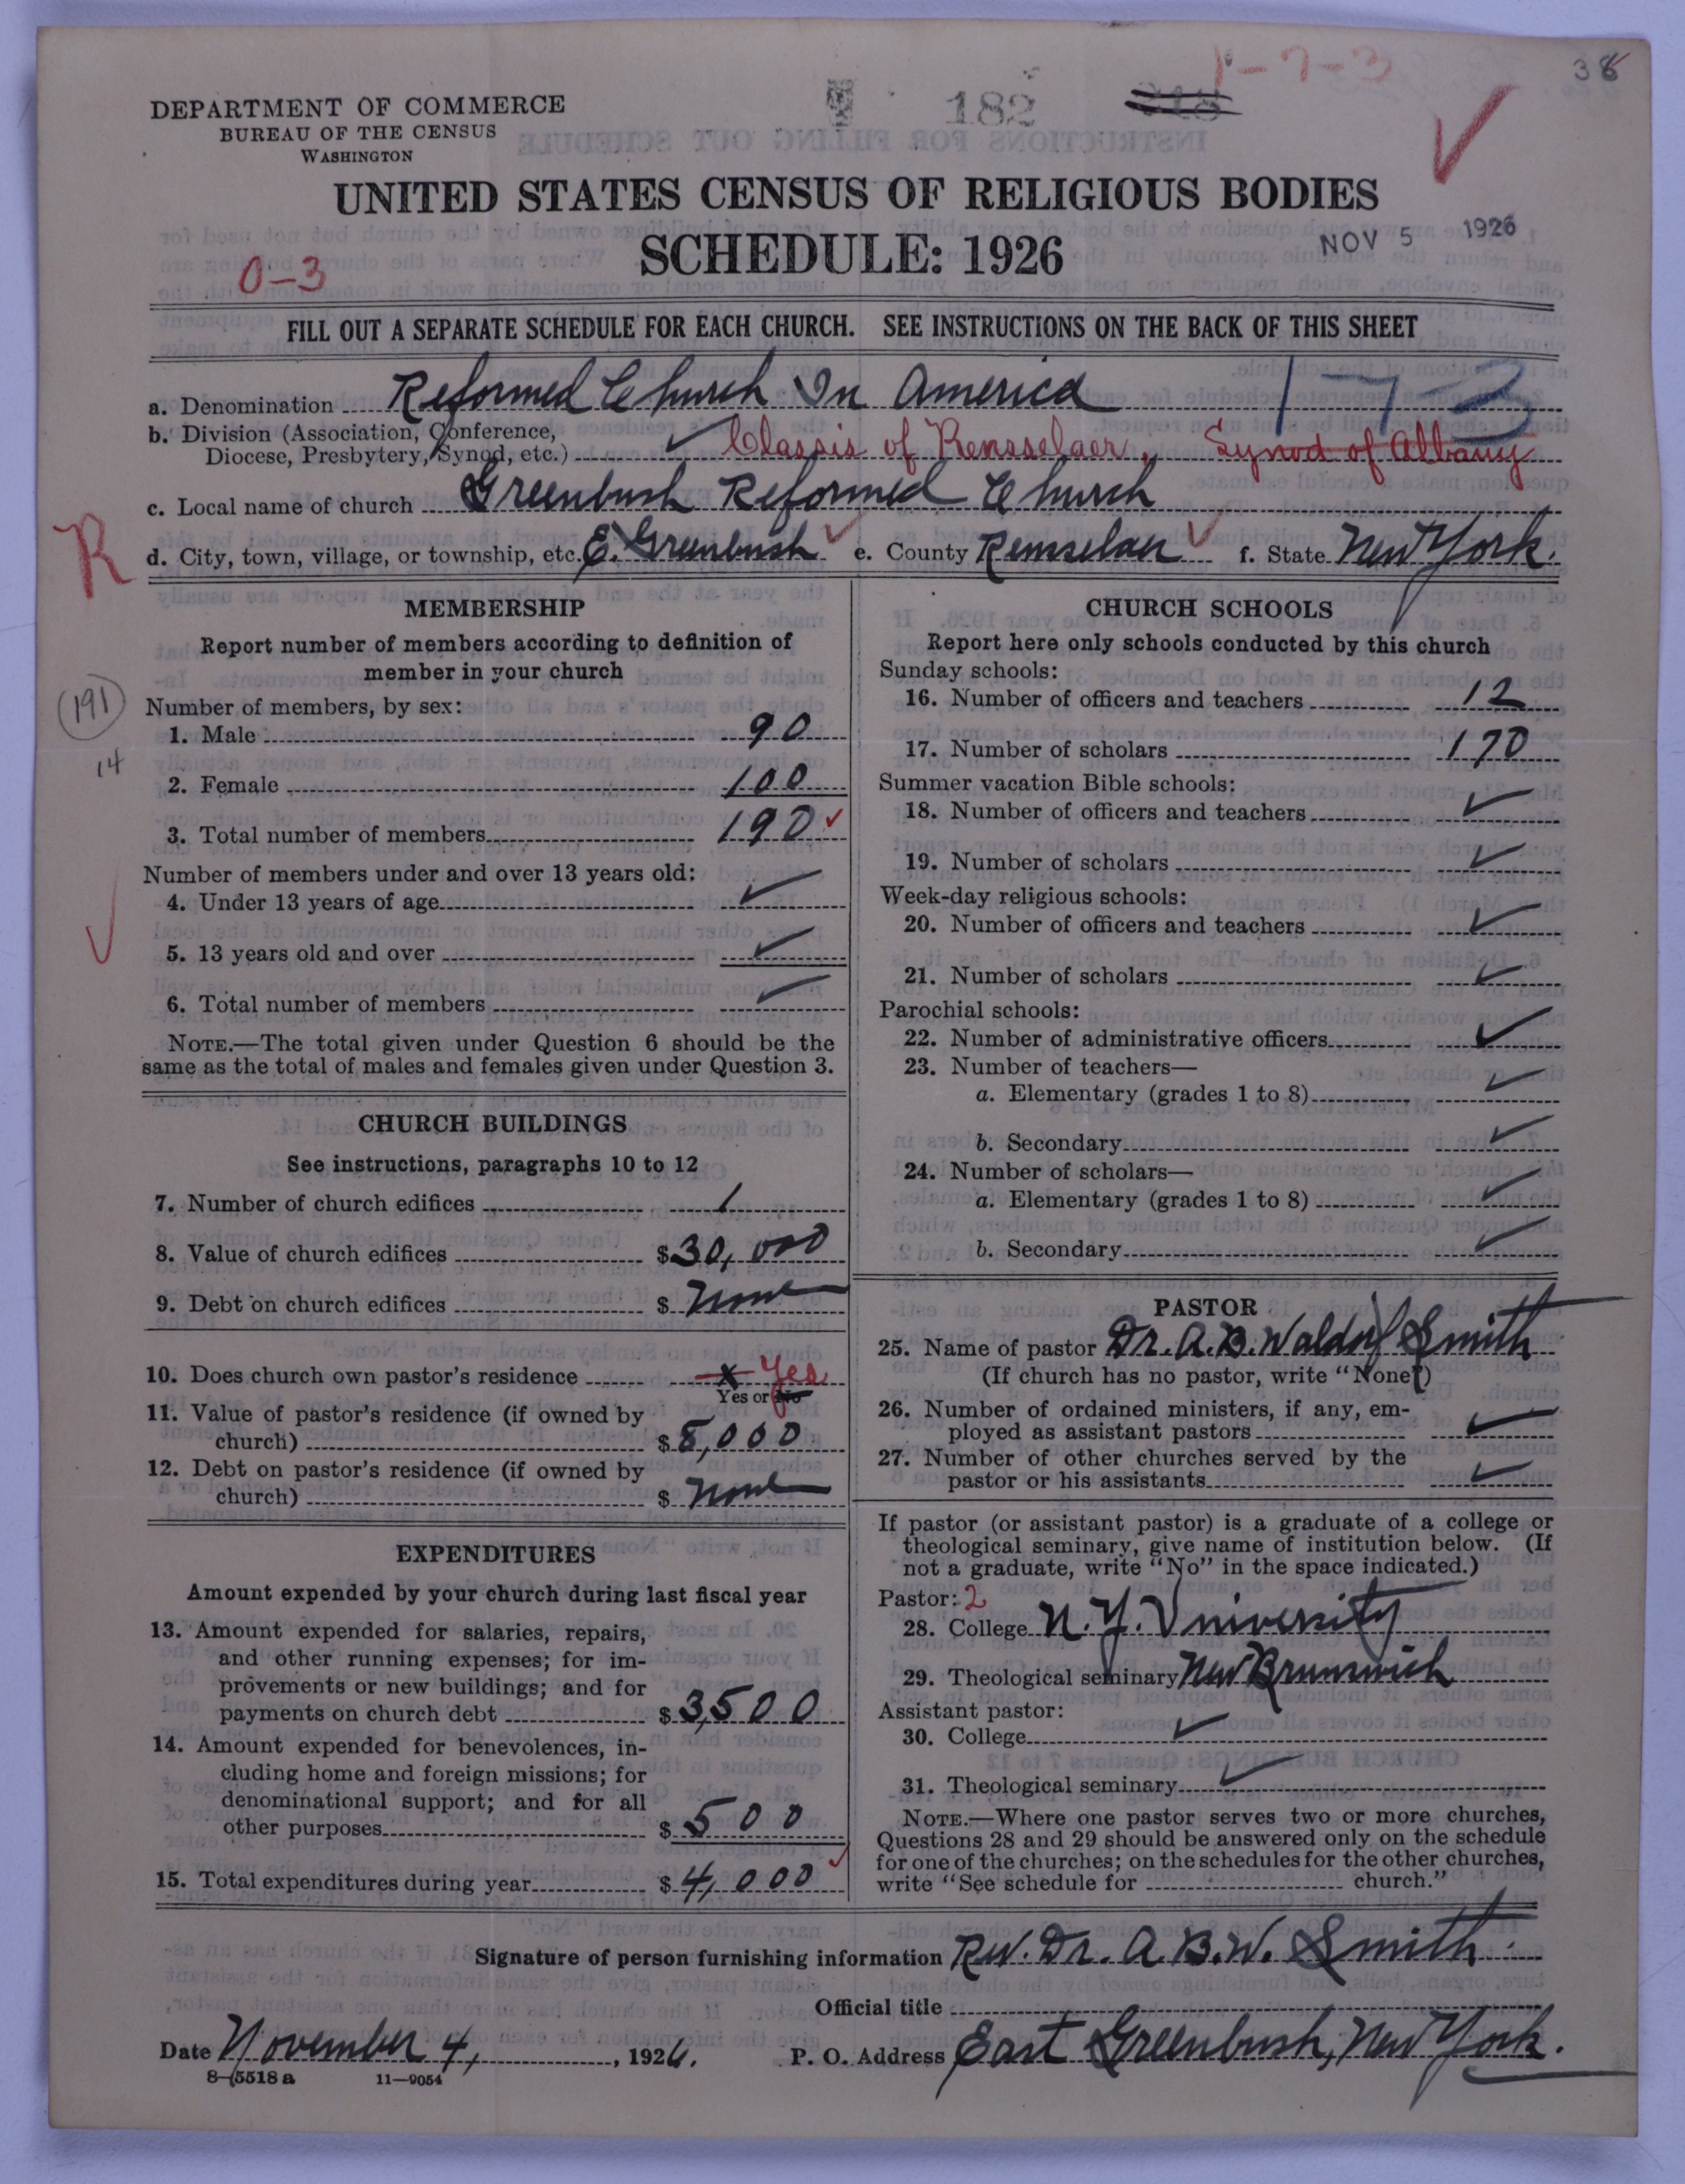 1-7-3
38
182
DEPARTMENT OF COMMERCE
BUREAU OF THE CENSUS
WASHINGTON
UNITED STATES CENSUS OF RELIGIOUS BODIES
SCHEDULE: 1926
NOV 5 1926
0-3
FILL OUT A SEPARATE SCHEDULE FOR EACH CHURCH. SEE INSTRUCTIONS ON THE BACK OF THIS SHEET
a. Denomination Reformed Church In America 1-7-3
b. Division (Association, Conference,
Diocese, Presbytery, Synod, etc.) ✓ Classis of Rensselaer, Synod of Albany
c. Local name of church Greenbush Reformed Church
R
d. City, town, village, or township, etc. E. Greenbush ✓ e. County Rensselaer ✓ f. State New York.
MEMBERSHIP
Report number of members according to definition of
member in your church
(191)
Number of members, by sex:
1. Male 90
14
2. Female 100
3. Total number of members 190 ✓
Number of members under and over 13 years old:
4. Under 13 years of age ✓
5. 13 years old and over ✓
6. Total number of members ✓
NOTE.—The total given under Question 6 should be the
same as the total of males and females given under Question 3.
CHURCH BUILDINGS
See instructions, paragraphs 10 to 12
7. Number of church edifices 1
8. Value of church edifices $30,000
9. Debt on church edifices $ None
10. Does church own pastor's residence x Yes
Yes or No
11. Value of pastor's residence (if owned by
church) $8,000
12. Debt on pastor's residence (if owned by
church) $ None
EXPENDITURES
Amount expended by your church during last fiscal year
13. Amount expended for salaries, repairs,
and other running expenses; for im-
provements or new buildings; and for
payments on church debt $3,500
14. Amount expended for benevolences, in-
cluding home and foreign missions; for
denominational support; and for all
other purposes $ 500
15. Total expenditures during year $4,000 ✓
CHURCH SCHOOLS
Report here only schools conducted by this church
Sunday schools:
16. Number of officers and teachers 12
17. Number of scholars 170
Summer vacation Bible schools:
18. Number of officers and teachers ✓
19. Number of scholars ✓
Week-day religious schools:
20. Number of officers and teachers ✓
21. Number of scholars ✓
Parochial schools:
22. Number of administrative officers ✓
23. Number of teachers—
a. Elementary (grades 1 to 8) ✓
b. Secondary ✓
24. Number of scholars—
a. Elementary (grades 1 to 8) ✓
b. Secondary ✓
PASTOR
25. Name of pastor Dr. A. B. Waldorf Smith
(If church has no pastor, write "None")
26. Number of ordained ministers, if any, em-
ployed as assistant pastors ✓
27. Number of other churches served by the
pastor or his assistants ✓
If pastor (or assistant pastor) is a graduate of a college or
theological seminary, give name of institution below. (If
not a graduate, write "No" in the space indicated.)
Pastor: 2
28. College N. Y. University
29. Theological seminary New Brunswick
Assistant pastor:
30. College ✓
31. Theological seminary ✓
NOTE.—Where one pastor serves two or more churches,
Questions 28 and 29 should be answered only on the schedule
for one of the churches; on the schedules for the other churches,
write "See schedule for church."
Signature of person furnishing information Rev. Dr. A. B. W. Smith.
Official title
Date November 4, 1926. P. O. Address East Greenbush, New York.
8-5518 a 11—9054